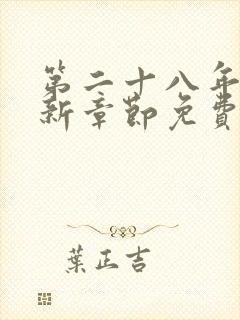 第二十八年
新章節免費
葉正吉